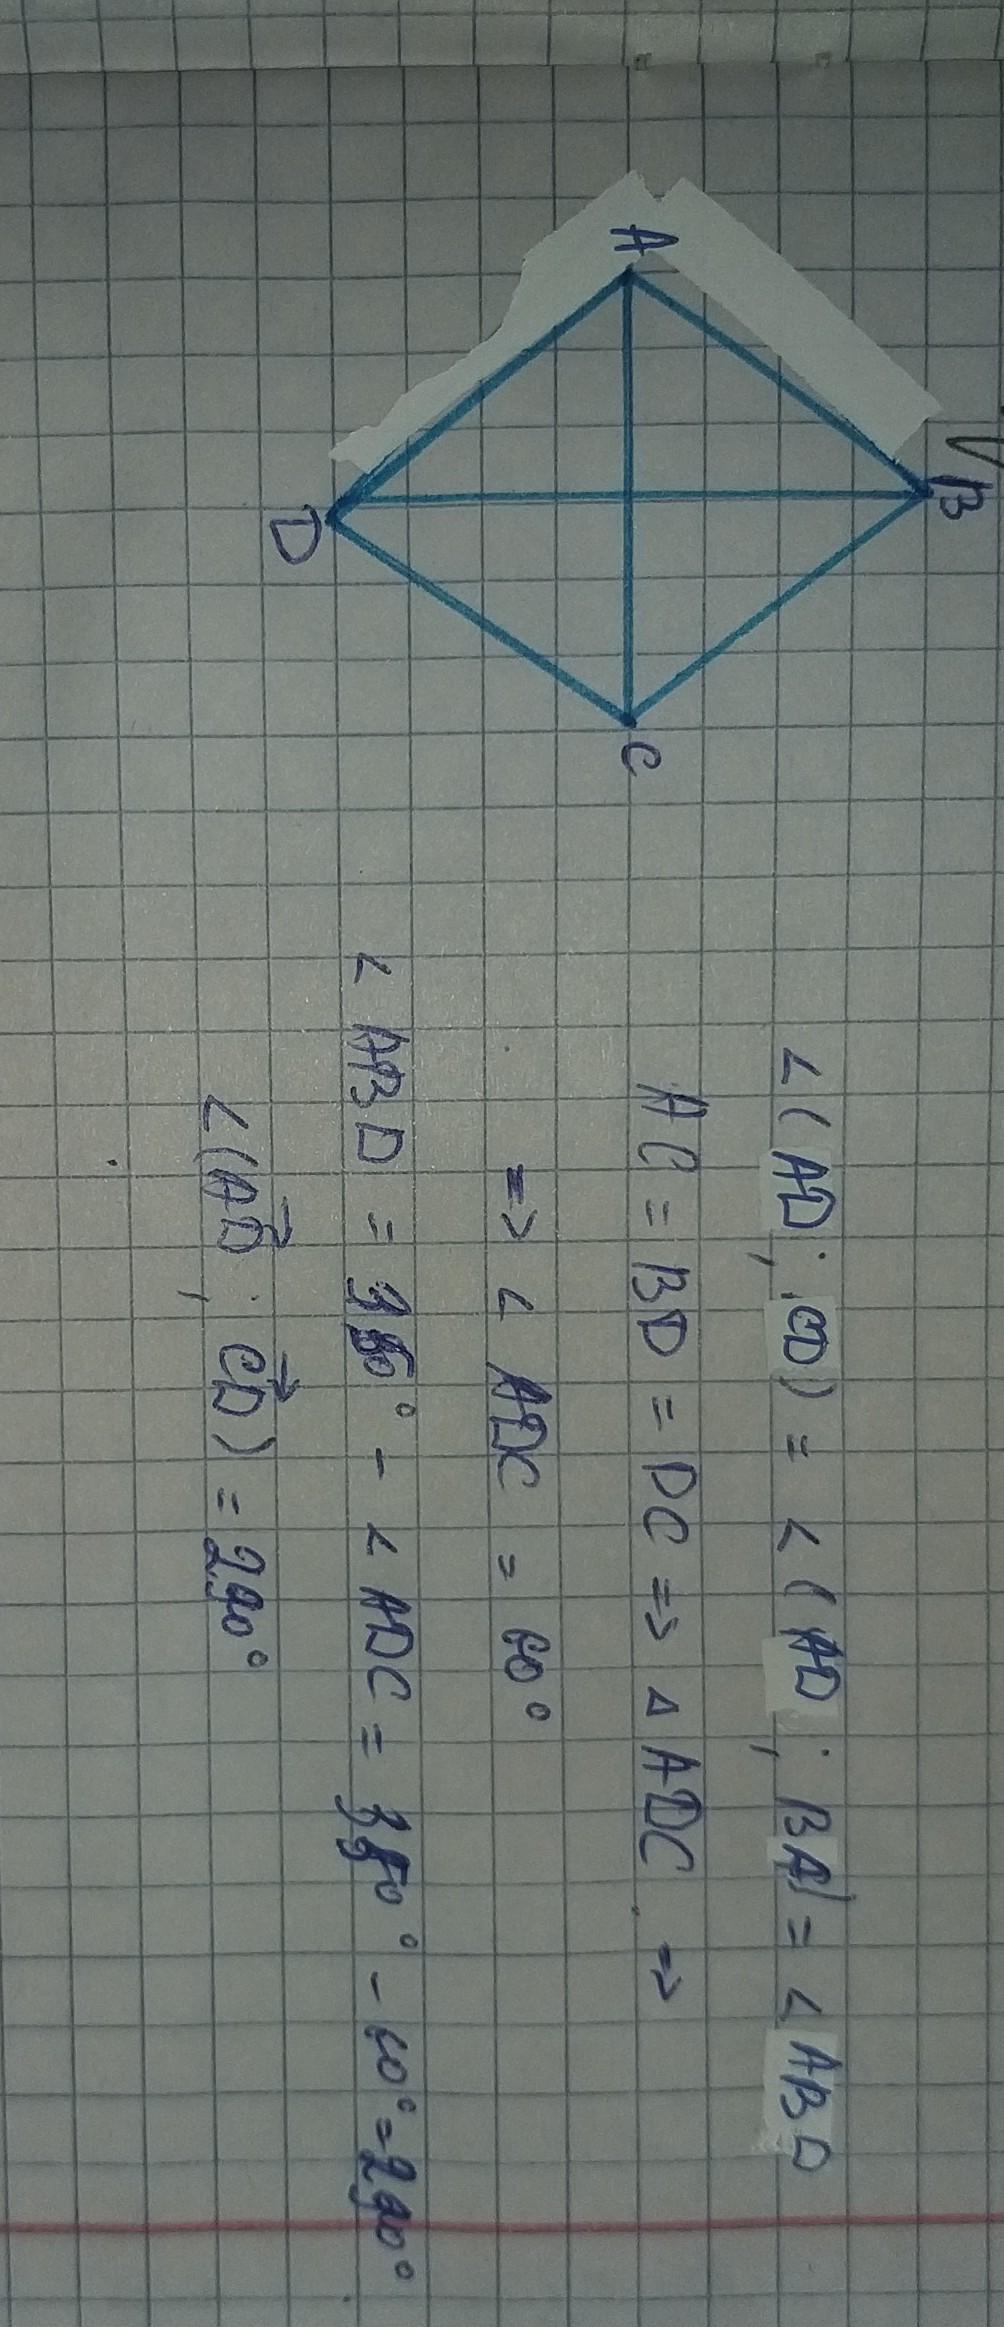 B
A
C
D
∠(AD; CD) = ∠(AD; BA) = ∠ABD
AC = BD = DC => △ADC =>
=> ∠ADC = 60°
∠ABD = 350° - ∠ADC = 350° - 60° = 290°
∠(AD; CD) = 290°